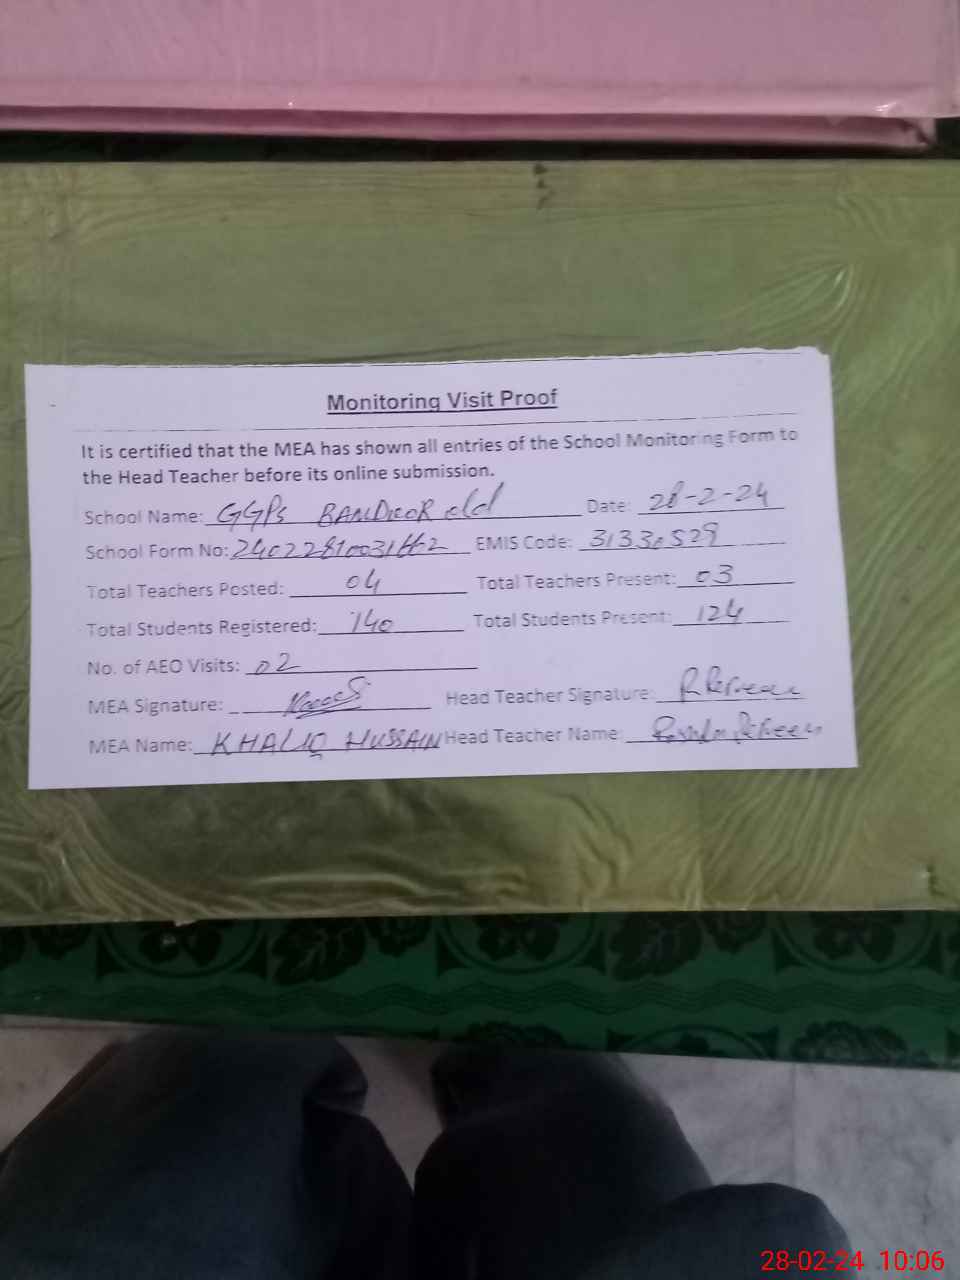 Monitoring Visit Proof
It is certified that the MEA has shown all entries of the School Monitoring Form to
the Head Teacher before its online submission.
School Name: GGPS Date: 28-2-24
School Form No: EMIS Code: 31330529
Total Teachers Posted: 04 Total Teachers Present: 03
Total Students Registered: 140 Total Students Present: 124
No. of AEO Visits: 02
MEA Signature: Head Teacher Signature:
MEA Name: KHALIQ HUSSAIN Head Teacher Name:
28-02-24 10:06